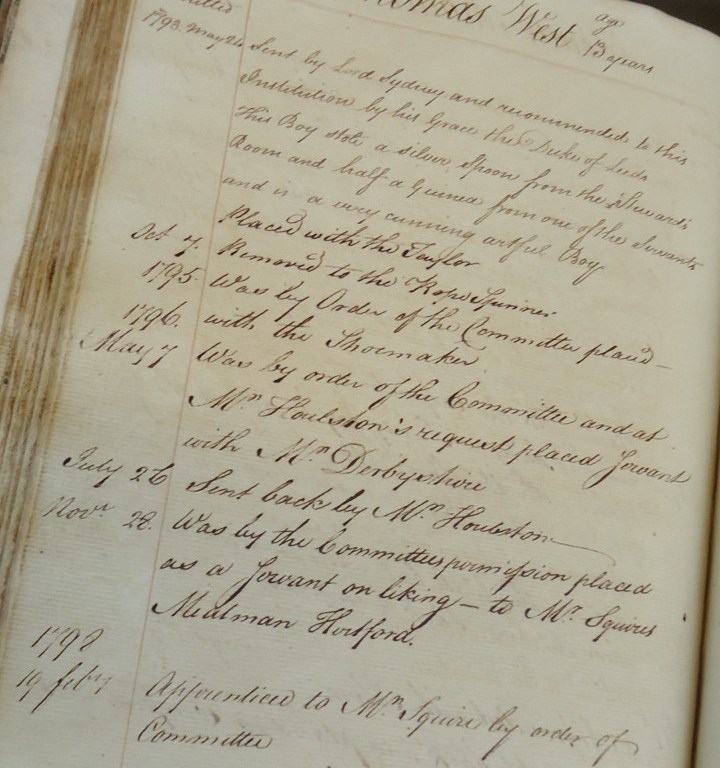 Thomas West age 13 years
1793. May 24 Sent by Lord Sydney and recommended to this
Institution by his Grace the Duke of Leeds
This Boy stole a silver Spoon from the Steward's
Room and half a Guinea from one of the Servants
and is a very cunning artful Boy
Placed with the Taylor
Oct 7. Removed to the Rope Spinner
1795. Was by Order of the Committee placed
with the Shoemaker
1796.
May 7 Was by order of the Committee and at
Mrs Houlston's request placed Servant
with Mrs Derbyshire
July 26 Sent back by Mrs Houlston
Novr 28. Was by the Committees permission placed
as a Servant on liking - to Mr Squires
Mealman Hertford.
1798
19 feby Apprenticed to Mr Squire by order of
Committee